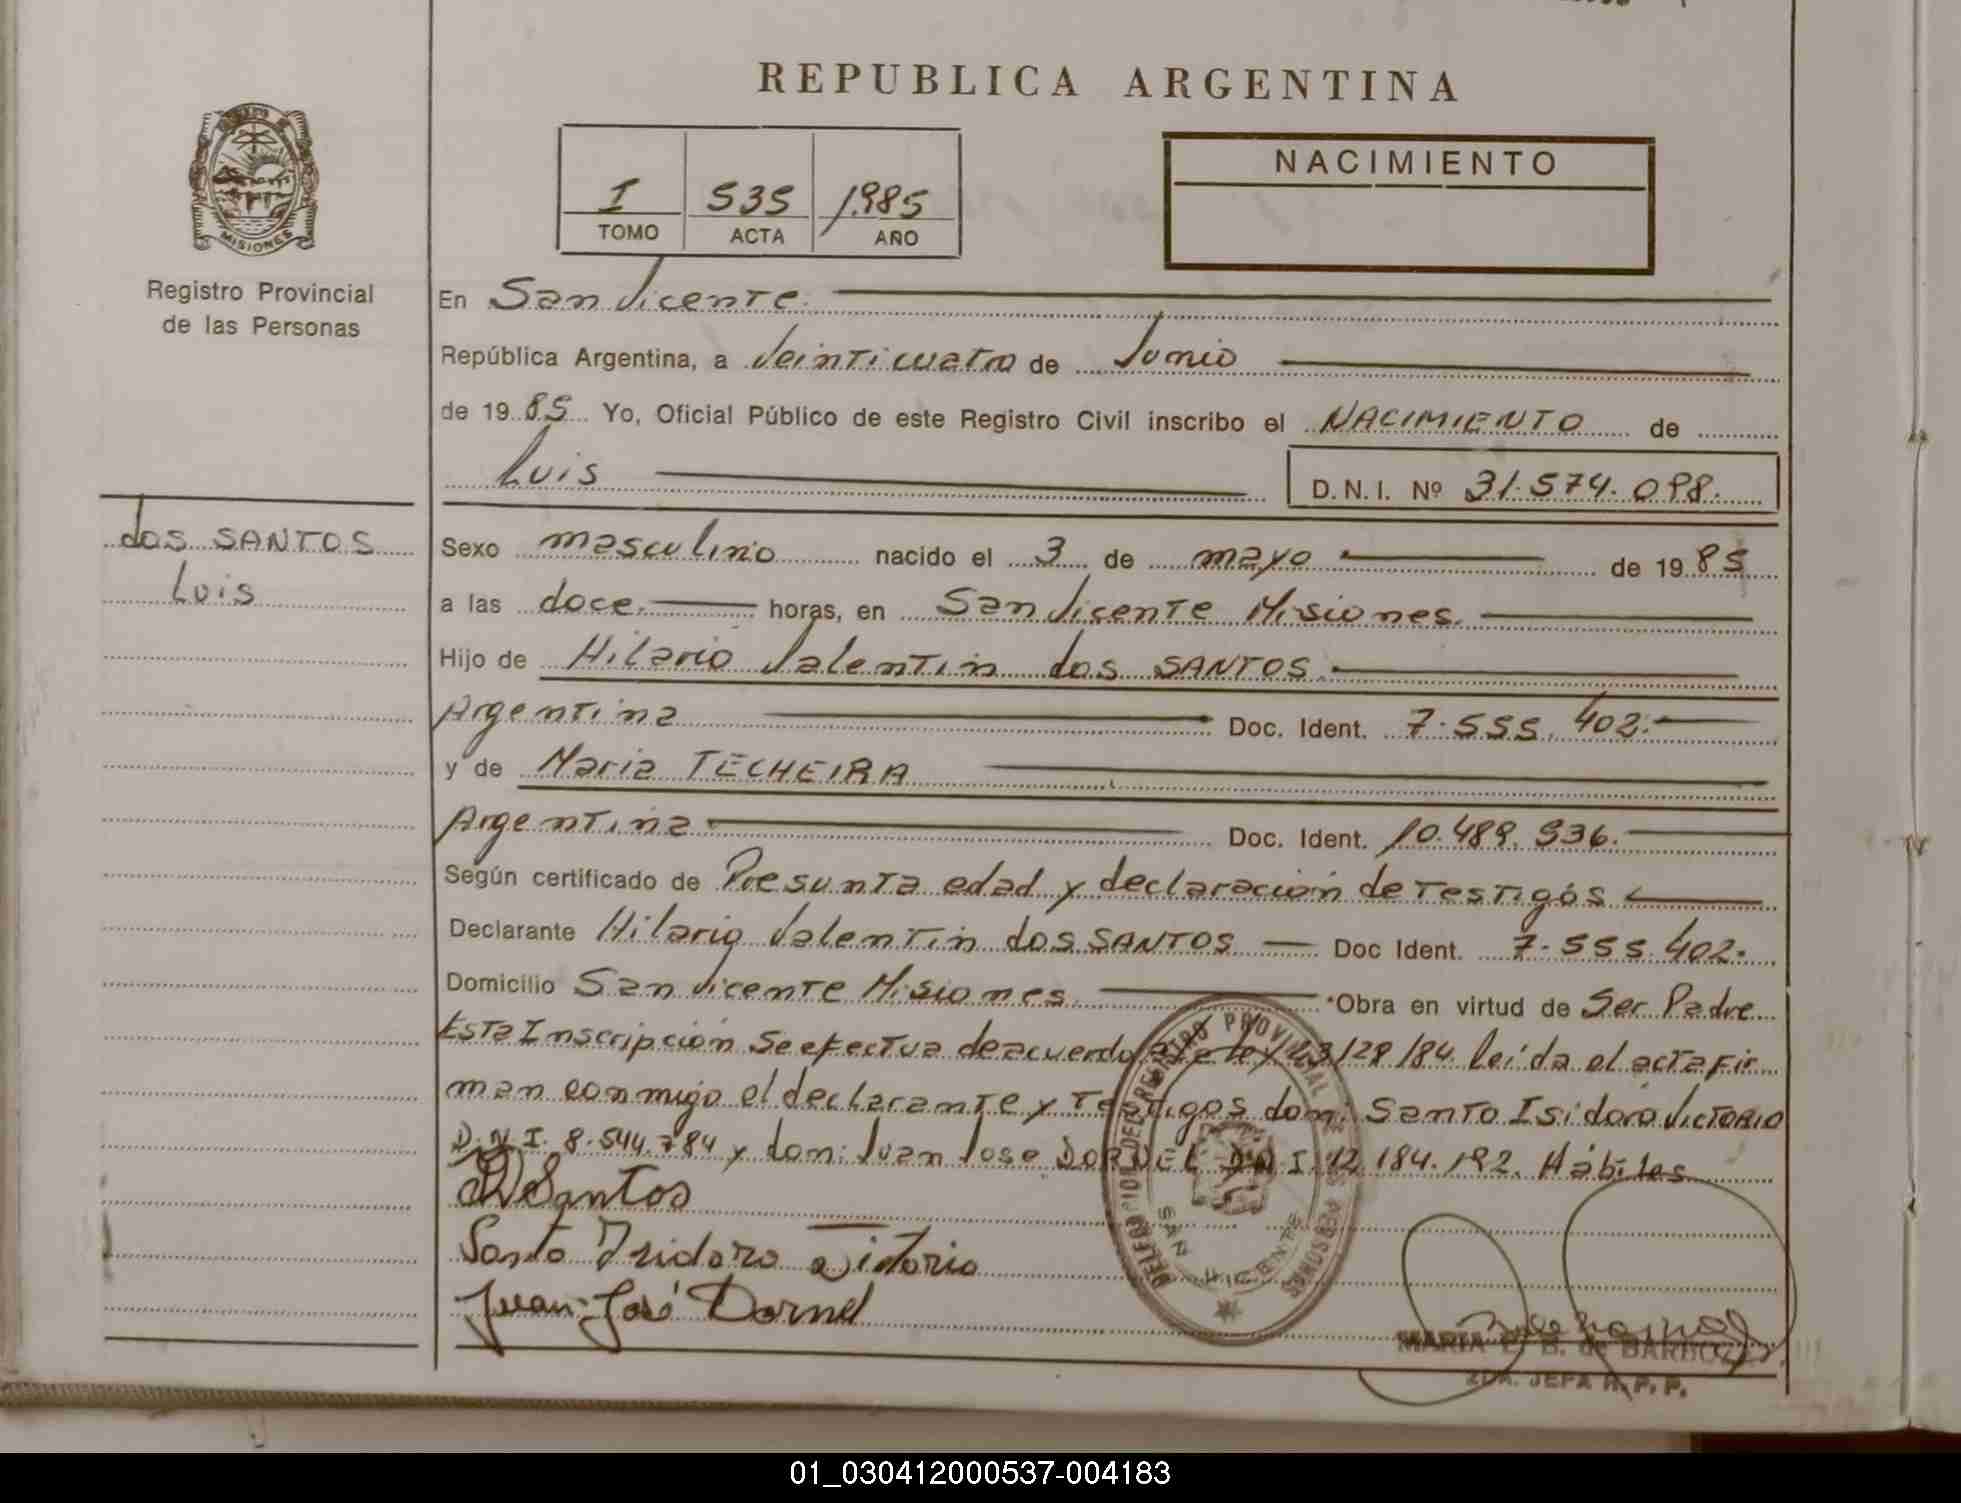 REPUBLICA ARGENTINA
MISIONES
Registro Provincial
de las Personas
I 535 1985
TOMO ACTA AÑO
NACIMIENTO
En San Vicente.
República Argentina, a Veinticuatro de Junio
de 19 85 Yo, Oficial Público de este Registro Civil inscribo el NACIMIENTO de
Luis D.N.I. Nº 31.574.098.
dos SANTOS
Luis
Sexo masculino nacido el 3 de mayo de 19 85
a las doce. horas, en San Vicente Misiones.
Hijo de Hilario Valentin dos SANTOS.
Argentina Doc. Ident. 7.555.402.
y de Maria TECHEIRA
Argentina Doc. Ident. 10.489.936.
Según certificado de Presunta edad y declaración de Testigos
Declarante Hilario Valentin dos SANTOS Doc Ident. 7.555.402.
Domicilio San Vicente Misiones *Obra en virtud de Ser Padre
Esta Inscripción se efectua de acuerdo a la ley 23128/84. leída el acta fir
man conmigo el declarante y Testigos don: Santo Isidoro VICTORIO
D.N.I. 8.544.784 y don: Juan Jose DORNEL D.N.I. 12.184.192. Hábiles
Santos
Santo Isidoro Victorio
Juan José Dornel
DELEGACION DEL REGISTRO PROVINCIAL DE LAS PERSONAS
SAN VICENTE
MARIA E. B. de BARBOZA
2DA. JEFA R. P. P.
01_030412000537-004183